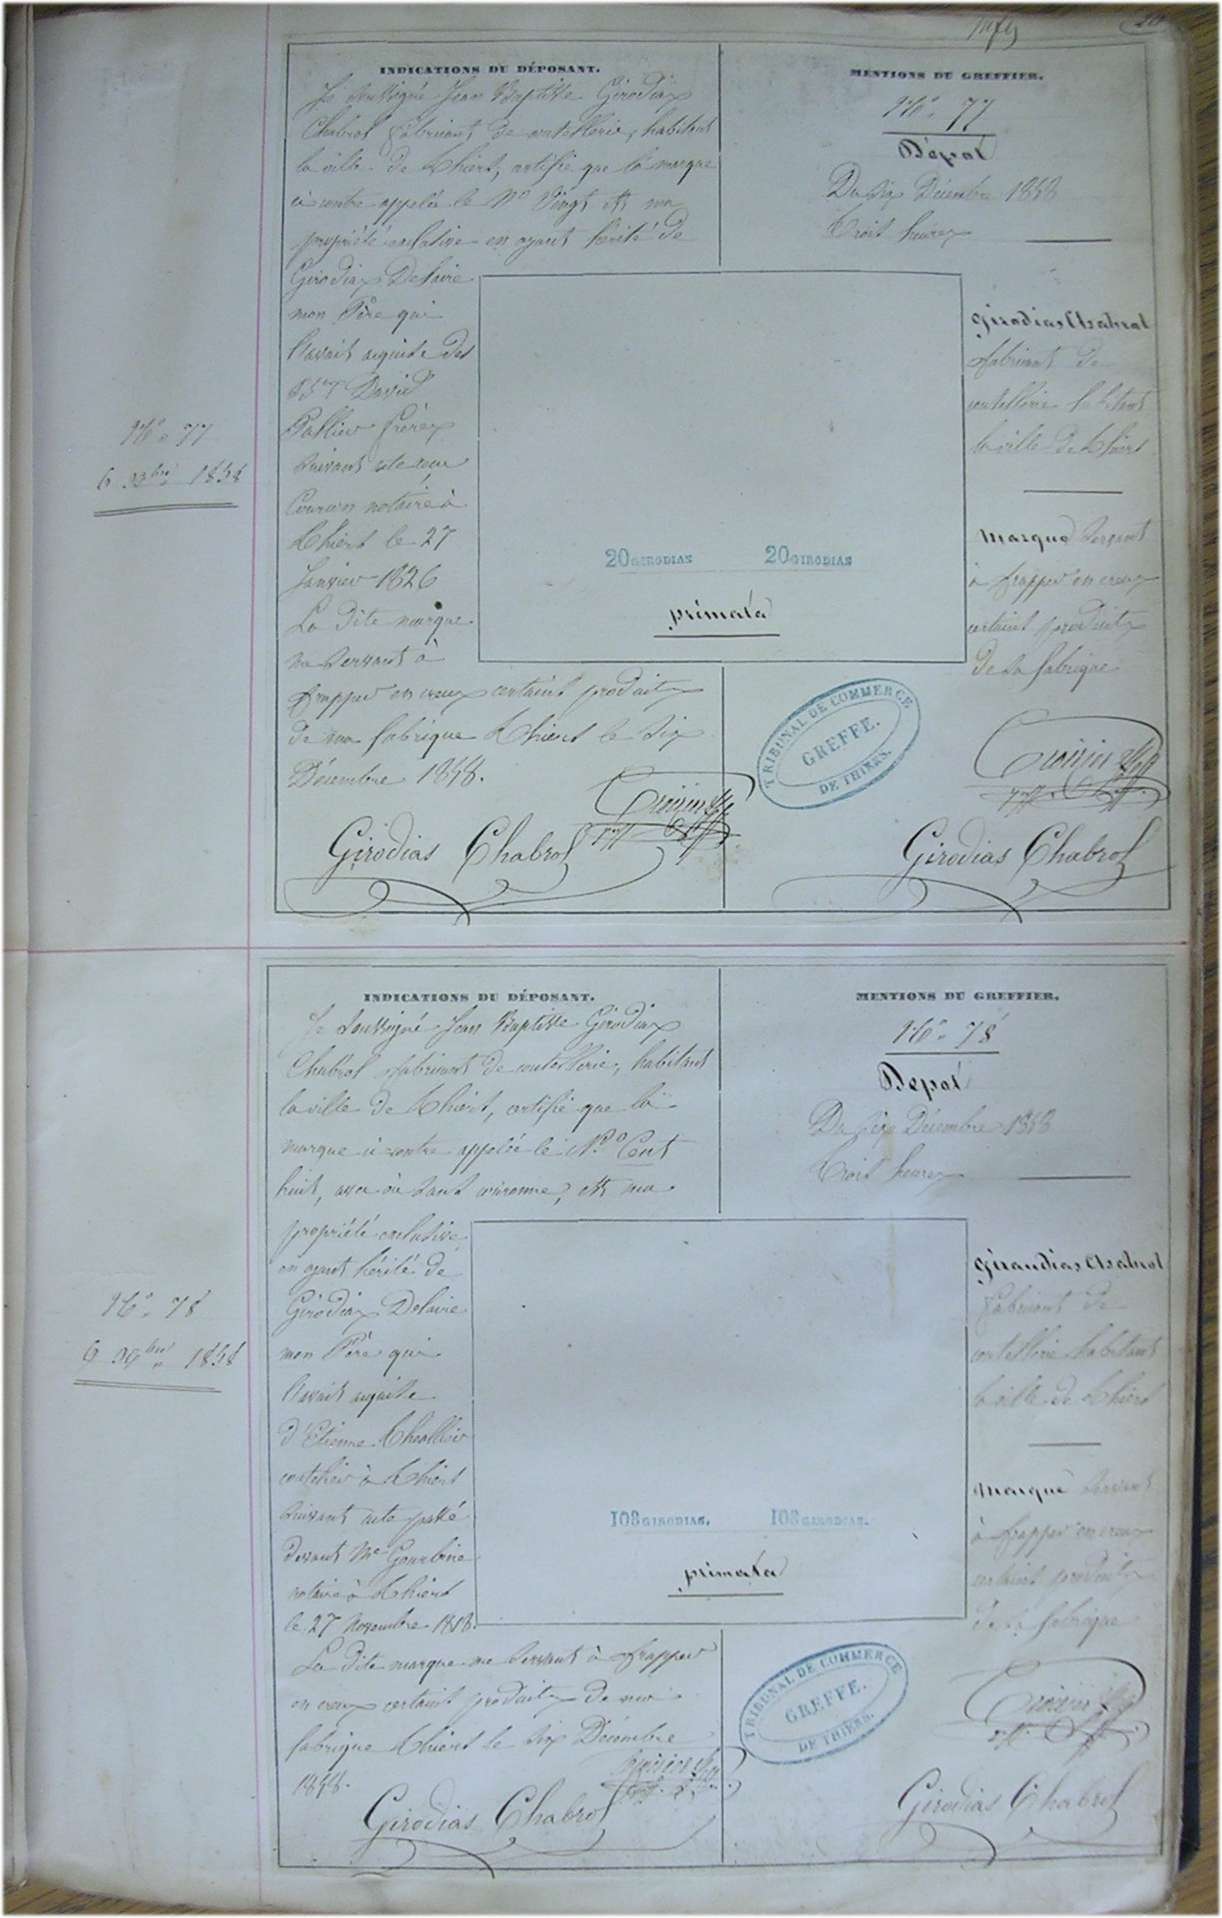 20
N° 77
6 Xbre 1858
INDICATIONS DU DÉPOSANT.
Je soussigné Jean Baptiste Girodias
Chabrol fabricant de coutellerie, habitant
la ville de Thiers, certifie que la marque
ci contre appelée le N° Vingt est ma
propriété exclusive en ayant hérité de
Girodias Delaire
mon Père qui
l'avait acquise des
David
frères
suivant acte reçu
notaire à
Thiers le 27
Janvier 1826
La dite marque
me servant à
frapper en creux certains produits
de ma fabrique Thiers le Six
Décembre 1858.
Girodias Chabrol
MENTIONS DU GREFFIER.
N° 77
Dépot
Du Six Décembre 1858
Trois heures
Girodias Chabrol
fabricant de
coutellerie habitant
la ville de Thiers
Marque servant
à frapper en creux
certains produits
de sa fabrique
20 GIRODIAS 20 GIRODIAS
primata
TRIBUNAL DE COMMERCE
GREFFE.
DE THIERS.
Girodias Chabrol
N° 78
6 Xbre 1858
INDICATIONS DU DÉPOSANT.
Je soussigné Jean Baptiste Girodias
Chabrol fabricant de coutellerie, habitant
la ville de Thiers, certifie que la
marque ci contre appelée le N° Cent
huit, avec ou sans couronne, est ma
propriété exclusive
en ayant hérité de
Girodias Delaire
mon Père qui
l'avait acquise
d'Etienne
coutelier à Thiers
suivant acte passé
devant Me
notaire à Thiers
le 27 Novembre
La dite marque me servant à frapper
en creux certains produits de ma
fabrique Thiers le Six Décembre
1858.
Girodias Chabrol
MENTIONS DU GREFFIER.
N° 78
Depot
Du Six Décembre 1858
Trois heures
Giraudias Chabrol
fabricant de
coutellerie habitant
la ville de Thiers
Marque servant
à frapper en creux
certains produits
de sa fabrique
108 GIRODIAS. 108 GIRODIAS.
primata
TRIBUNAL DE COMMERCE
GREFFE.
DE THIERS.
Girodias Chabrol